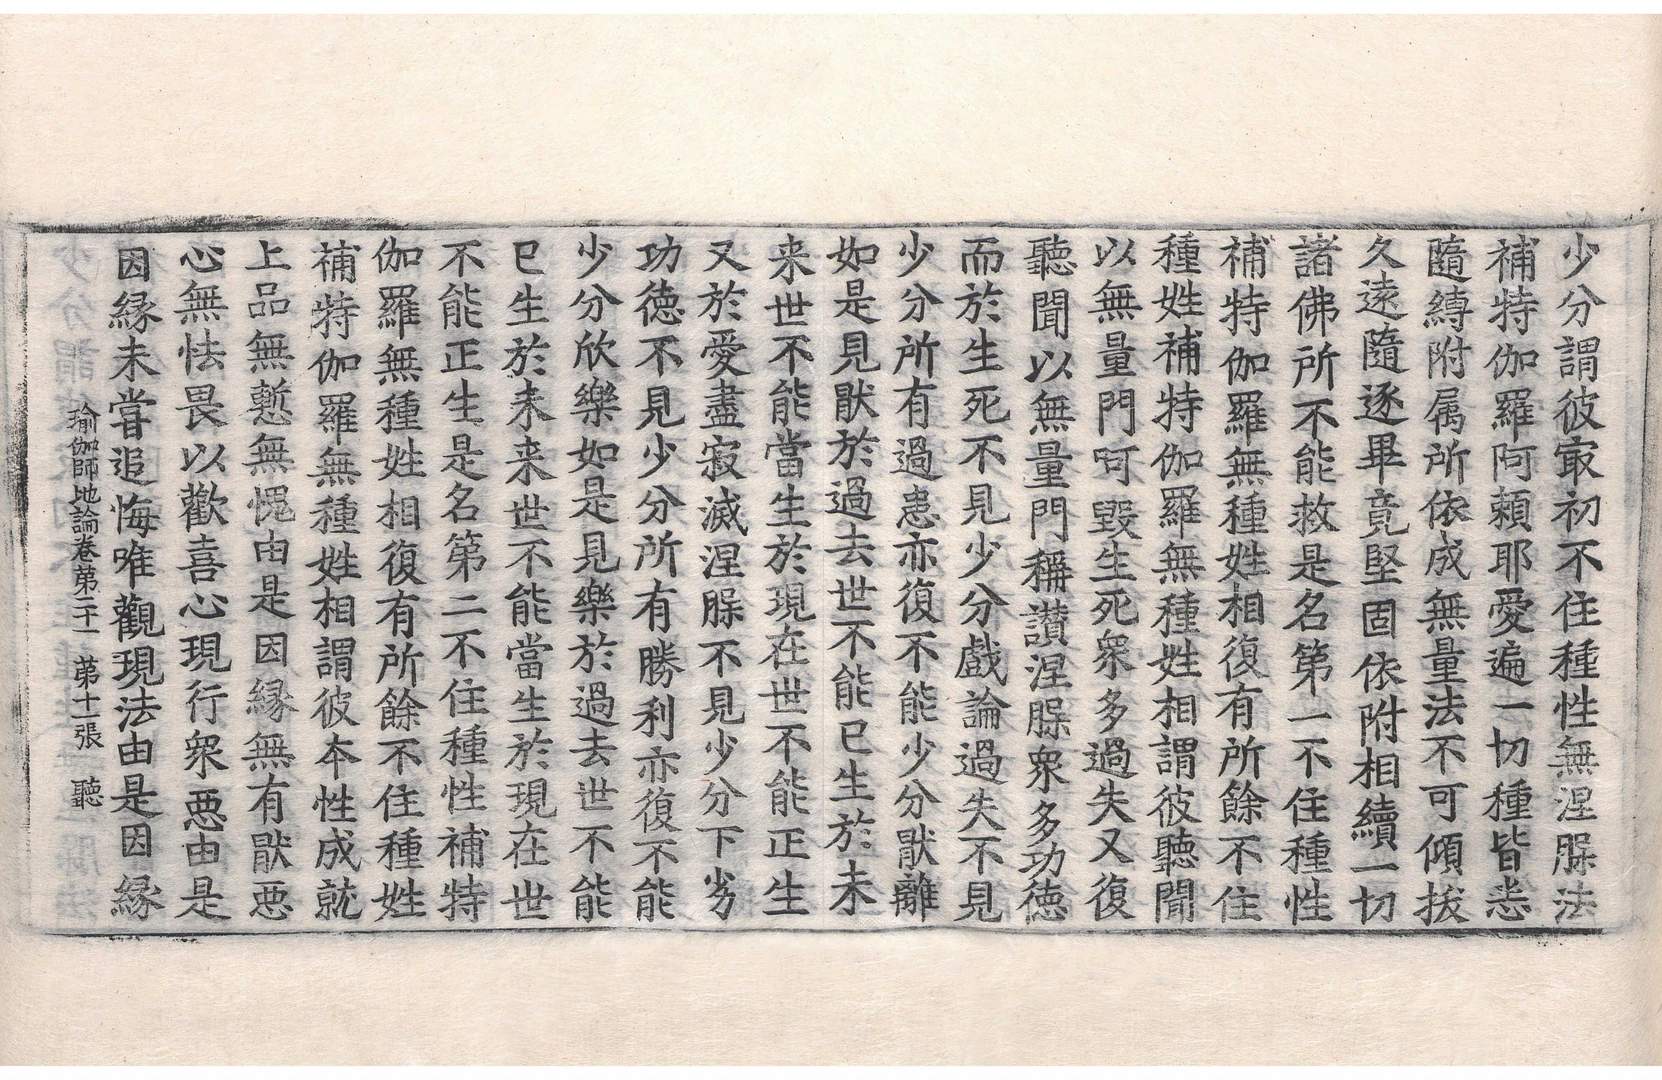 少分謂彼㝡初不住種性無涅脲法
補特伽羅阿賴耶愛遍一切種皆悉
隨縛附属所依成無量法不可傾拔
久遠隨逐畢竟堅固依附相續一切
諸佛所不能救是名第一不住種性
補特伽羅無種姓相復有所餘不住
種姓補特伽羅無種姓相謂彼聽聞
以無量門呵毀生死衆多過失又復
聽聞以無量門稱讃涅脲衆多功德
而於生死不見少分戲論過失不見
少分所有過患亦復不能少分猒離
如是見猒於過去世不能已生於未
来世不能當生於現在世不能正生
又於愛盡寂滅涅脲不見少分下劣
功徳不見少分所有勝利亦復不能
少分欣樂如是見樂於過去世不能
已生於未来世不能當生於現在世
不能正生是名第二不住種性補特
伽羅無種姓相復有所餘不住種姓
補特伽羅無種姓相謂彼本性成就
上品無慙無愧由是因縁無有猒悪
心無怯畏以歡喜心現行衆悪由是
因縁未甞追悔唯觀現法由是因縁
瑜伽師地論卷第二十一 第十一張 聽